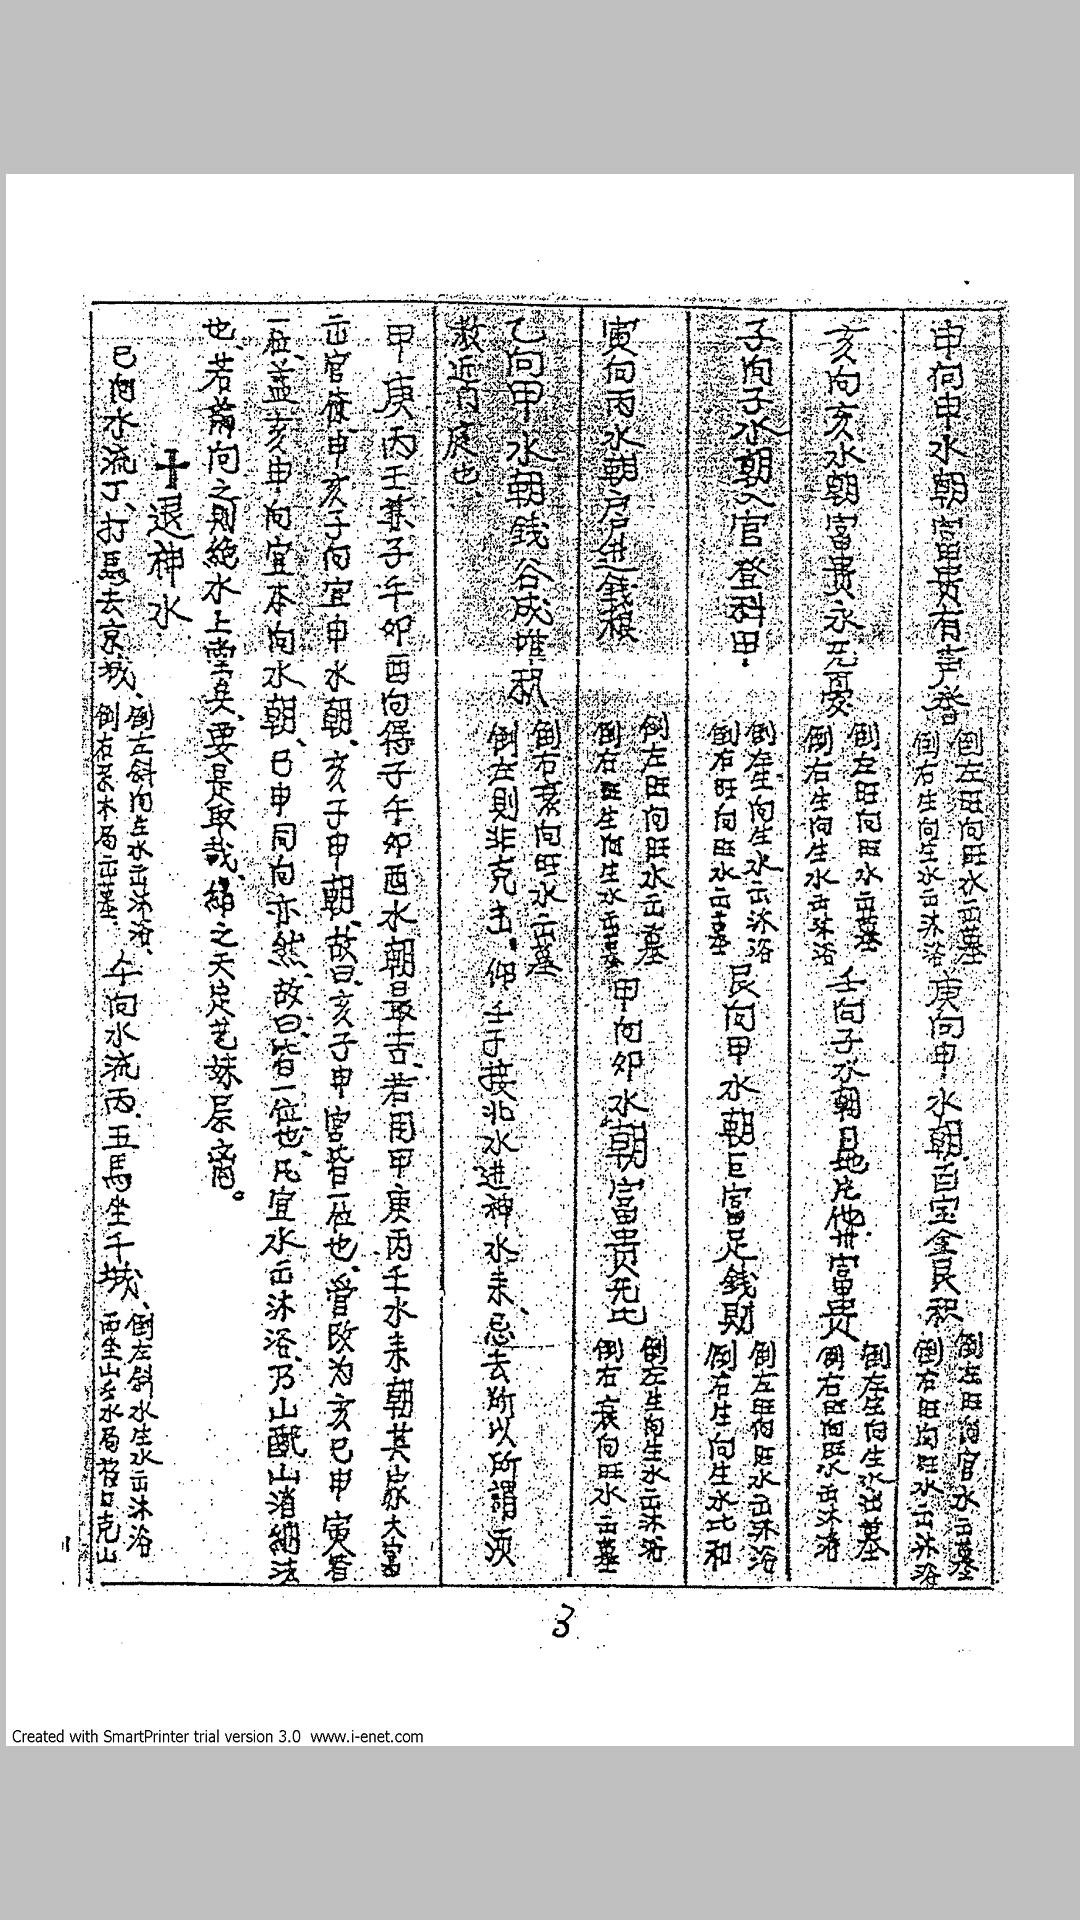 申向申水朝富貴有声登
倒左旺向旺水出墓
倒右生向生水出沐浴
庚向申水朝百宝金艮积
倒左旺向官水出墓
倒右旺向旺水出沐浴
亥向亥水朝富貴永无憂
倒左旺向旺水出墓
倒右生向生水出沐浴
壬向子水朝 富貴
倒左生向生水出墓
倒右旺向旺水出沐浴
子向子水朝入官登科甲
倒左生向生水出沐浴
倒右旺向旺水出墓
艮向甲水朝巨富足錢財
倒左旺向旺水出沐浴
倒右生向生水比和
寅向丙水朝戶進錢粮
倒左旺向旺水出墓
倒右旺生向生水出墓
甲向卯水朝富貴无比
倒左生向生水出沐浴
倒右衰向旺水出墓
乙向甲水朝錢谷成堆积
倒右衰向旺水出墓
倒左則非克出、仰壬子接北水進神水来、忌去所以所謂須
救近丙庭也
甲庚丙壬兼子午卯酉向得子午卯酉水朝最吉、若用甲庚丙壬水来朝其家大富
出官祿、申亥子向宜申水朝、亥子申朝、故曰亥子申宮皆一位也、管改为亥巳申寅皆
一位、益亥申向宜本向水朝、巳申同向亦然、故曰皆一位也、凡宜水出沐浴、乃山配山消納法
也、若 向之則絶水上堂矣、要是取哉、 之天定
十退神水
巳向水流丁、打馬去京城、
倒左斜向生水出沐浴、
倒右 木局出墓、
午向水流丙、五馬坐千城、
倒左斜水生水出沐浴
西坐山 水局 克山
3
Created with SmartPrinter trial version 3.0 www.i-enet.com